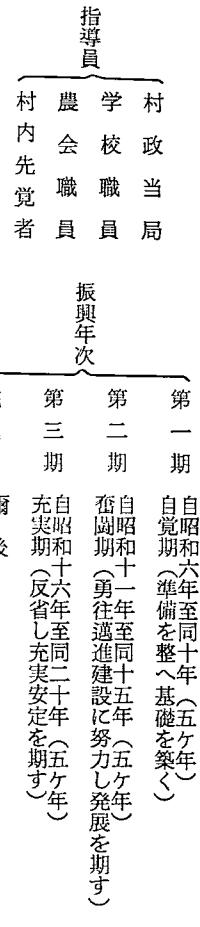 指導員
村政当局
学校職員
農会職員
村内先覚者
振興年次
第一期
自昭和六年至同十年(五ケ年)
自覚期(準備を整へ基礎を築く)
第二期
自昭和十一年至同十五年(五ケ年)
奮闘期(勇往邁進建設に努力し発展を期す)
第三期
自昭和十六年至同二十年(五ケ年)
充実期(反省し充実安定を期す)
爾後